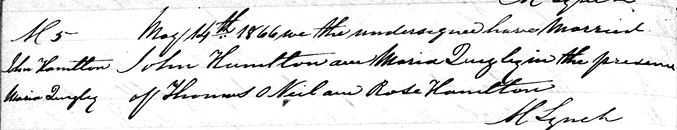 M 5 May 14th 1866 we the undersigned have Married
John Hamilton John Hamilton and Maria Quigley in the presence
Maria Quigley of Thomas O Neil and Rose Hamilton
M Lynch